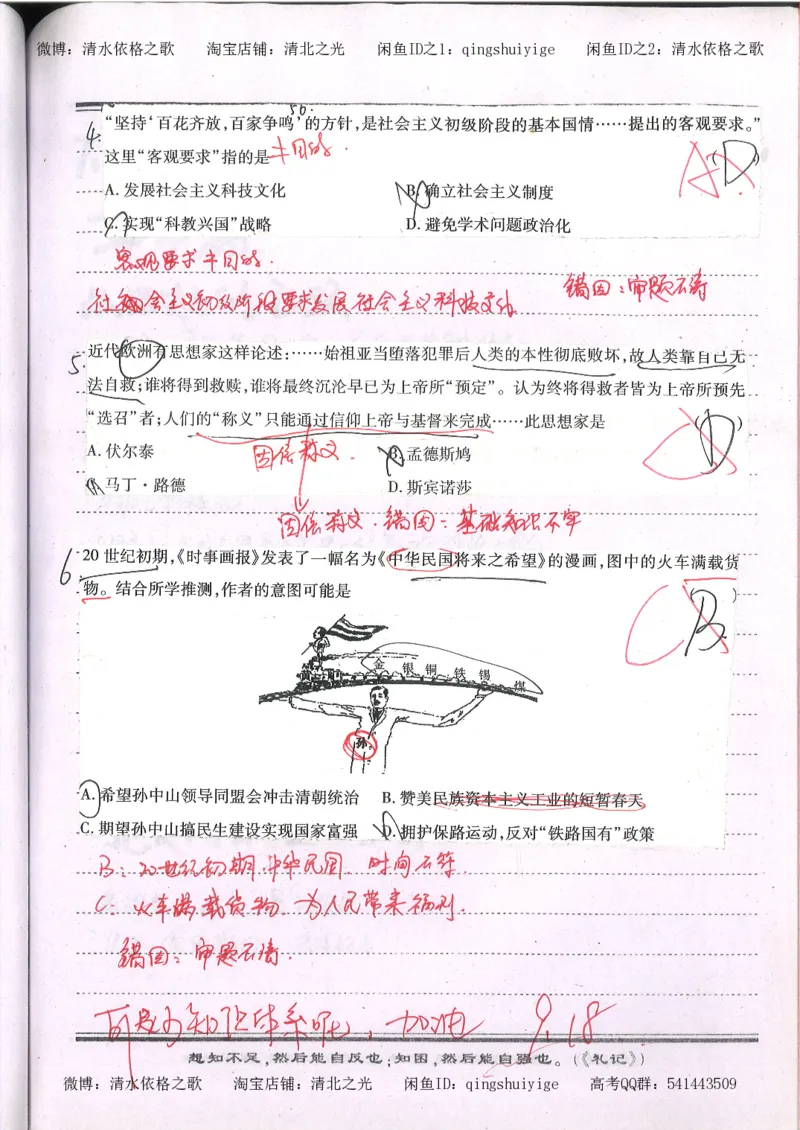 微博：清水依格之歌 淘宝店铺：清北之光 闲鱼ID之1：qingshuiyige 闲鱼ID之2：清水依格之歌
56.
4. “坚持‘百花齐放，百家争鸣’的方针，是社会主义初级阶段的基本国情……提出的客观要求。”
这里“客观要求”指的是 ≠目的. A (D)
A. 发展社会主义科技文化 B. 确立社会主义制度
C. 实现“科教兴国”战略 D. 避免学术问题政治化
客观要求≠目的.
错因：审题不清
社会主义初级阶段要求发展社会主义科技文化
5. 近代欧洲有思想家这样论述：……始祖亚当堕落犯罪后人类的本性彻底败坏，故人类靠自己无
法自救；谁将得到救赎，谁将最终沉沦早已为上帝所“预定”。认为终将得救者皆为上帝所预先
“选召”者；人们的“称义”只能通过信仰上帝与基督来完成……此思想家是 C (D)
A. 伏尔泰 因信称义. B. 孟德斯鸠
C. 马丁·路德 D. 斯宾诺莎
因信称义. 错因：基础知识不牢
6 20世纪初期，《时事画报》发表了一幅名为《中华民国将来之希望》的漫画，图中的火车满载货
物。结合所学推测，作者的意图可能是 C (B)
金 银 铜 铁 锡 煤
孙
A. 希望孙中山领导同盟会冲击清朝统治 B. 赞美民族资本主义工业的短暂春天
C. 期望孙中山搞民生建设实现国家富强 D. 拥护保路运动，反对“铁路国有”政策
B：20世纪初期.中华民国 时间不符.
C：火车满载货物 为人民带来福利.
错因：审题不清.
加油 9.18
想知不足，然后能自反也；知困，然后能自强也。（《礼记》）
微博：清水依格之歌 淘宝店铺：清北之光 闲鱼ID：qingshuiyige 高考QQ群：541443509